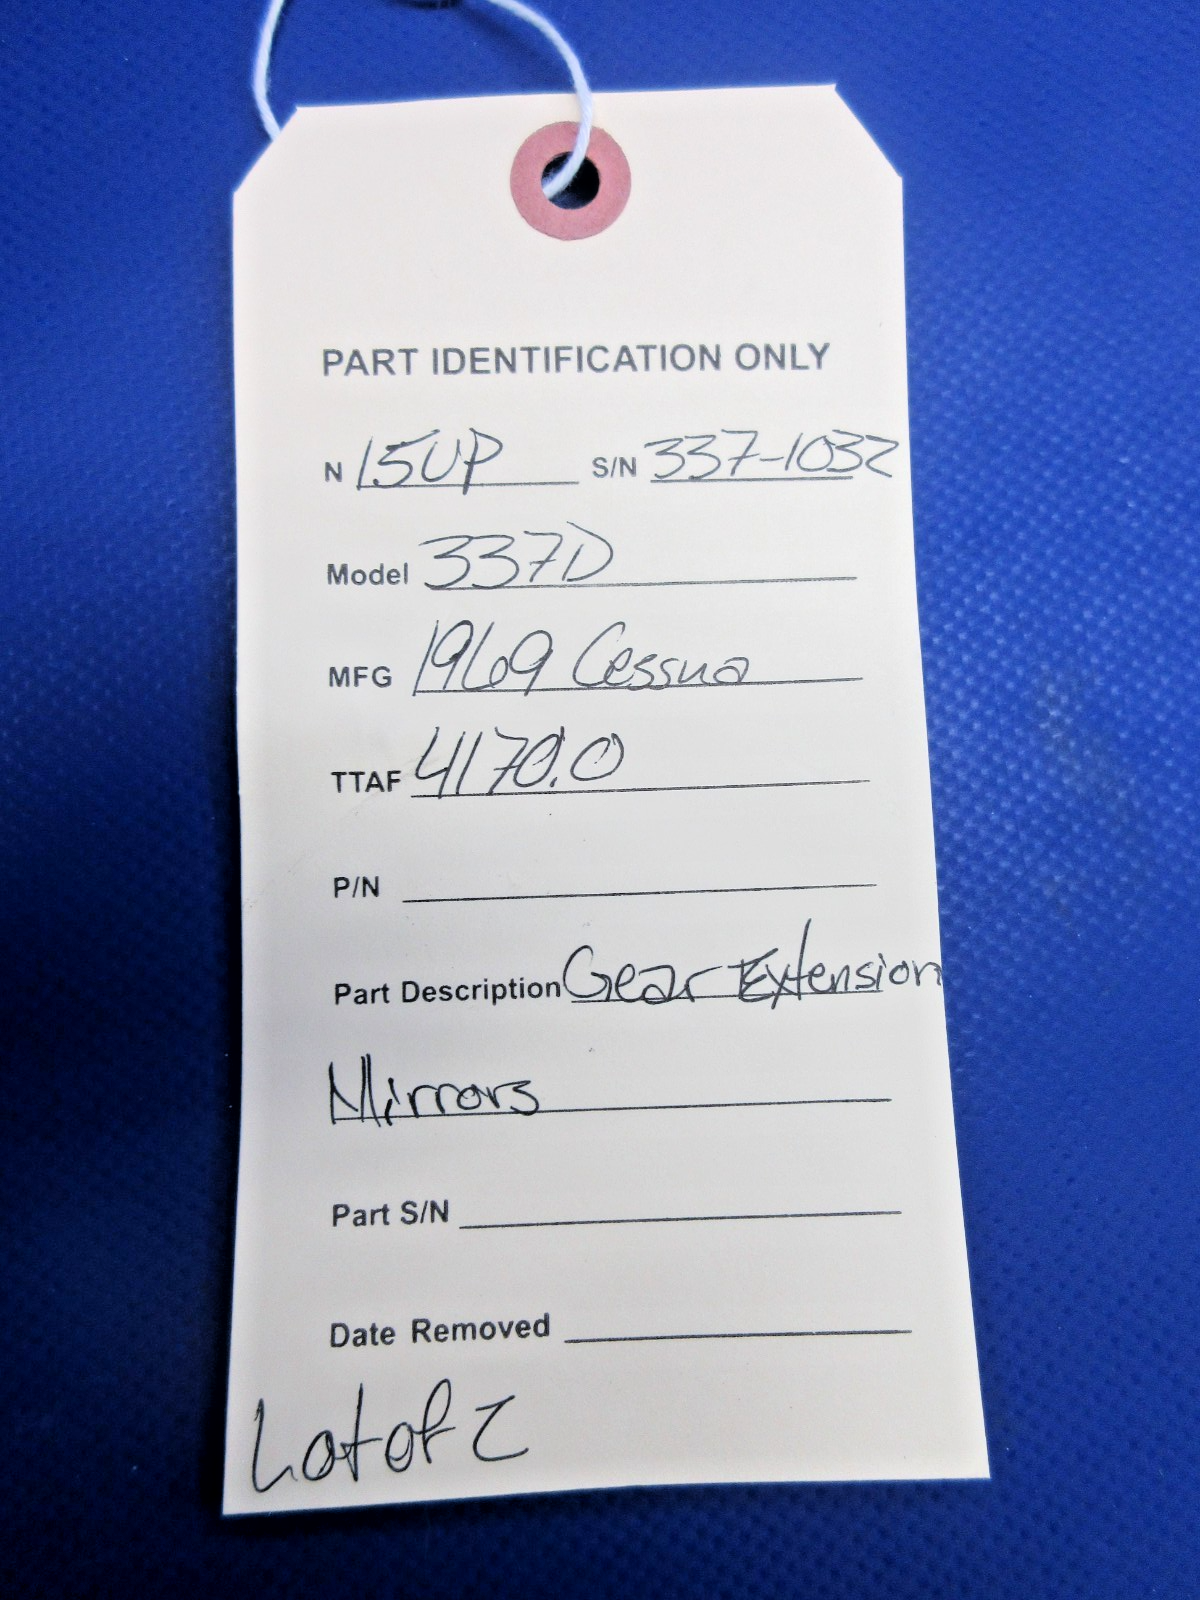 PART IDENTIFICATION ONLY
N 15UP S/N 337-1032
Model 337D
MFG 1969 Cessna
TTAF 4170.0
P/N
Part Description Gear Extension
Mirrors
Part S/N
Date Removed
Lot of 2